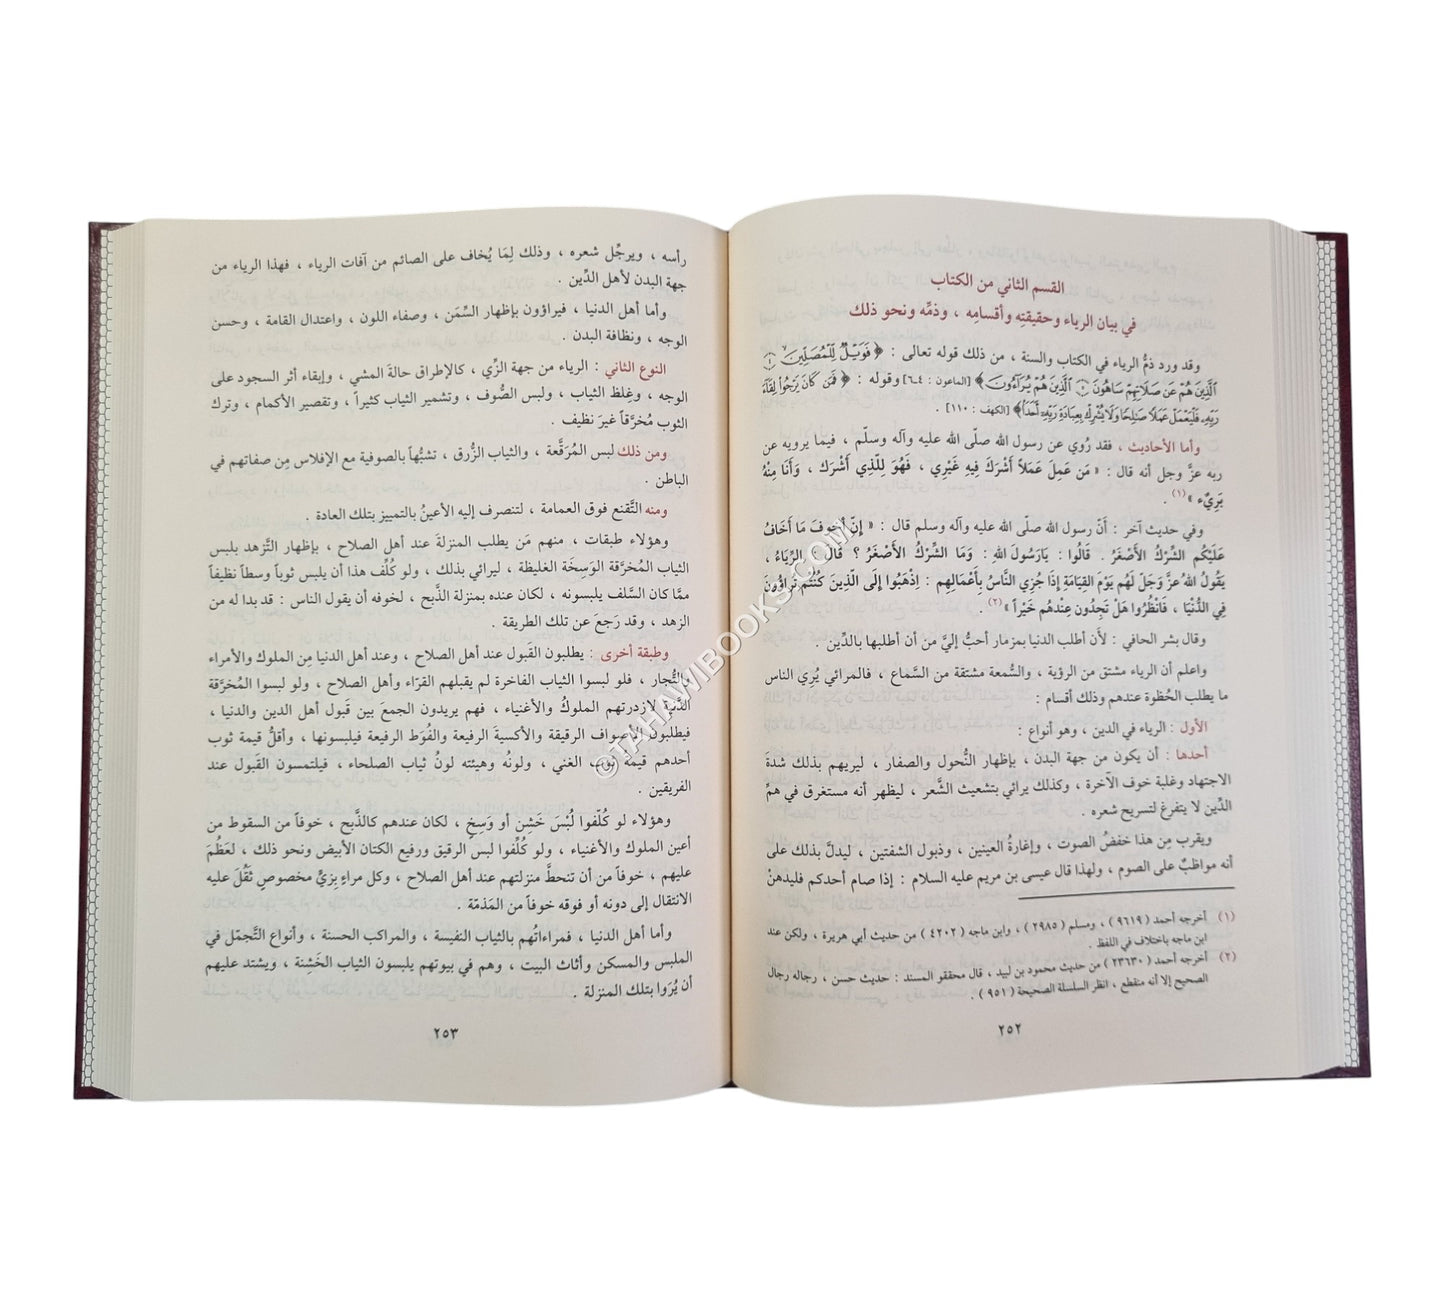 القسم الثاني من الكتاب
في بيان الرياء وحقيقتِه وأقسامِه ، وذمِّه ونحو ذلك
وقد ورد ذمُّ الرياء في الكتاب والسنة ، من ذلك قوله تعالى : ﴿ فَوَيْلٌ لِّلْمُصَلِّينَ ۝
ٱلَّذِينَ هُمْ عَن صَلَاتِهِمْ سَاهُونَ ۝ ٱلَّذِينَ هُمْ يُرَآءُونَ ﴾ [الماعون : ٤-٦] وقوله : ﴿ فَمَن كَانَ يَرْجُوا۟ لِقَآءَ
رَبِّهِۦ فَلْيَعْمَلْ عَمَلًا صَـٰلِحًا وَلَا يُشْرِكْ بِعِبَادَةِ رَبِّهِۦٓ أَحَدًۢا ﴾ [الكهف : ١١٠] .
وأما الأحاديث ، فقد رُوي عن رسول الله صلّى الله عليه وآله وسلّم ، فيما يرويه عن
ربه عزَّ وجل أنه قال : « مَن عَمِلَ عَمَلاً أَشْرَكَ فِيهِ غَيْرِي ، فَهُوَ لِلَّذِي أَشْرَكَ ، وَأَنَا مِنْهُ
بَرِيْء »(١) .
وفي حديث آخر : أنّ رسول الله صلّى الله عليه وآله وسلم قال : « إِنّ أَخوفَ مَا أَخَافُ
عَلَيْكُم الشِّرْكُ الأَصْغَرُ . قَالُوا : يَارَسُولَ اللهِ : وَمَا الشِّرْكُ الأَصْغَرُ ؟ قَالَ : الرِّيَاءُ ،
يَقُولُ اللهُ عزَّ وَجَلَّ لَهُم يَوْمَ القِيَامَةِ إِذَا جُزِيَ النَّاسُ بِأَعْمَالِهِم : اِذْهَبُوا إِلَى الّذِينَ كُنْتُم تُرَاؤُونَ
فِي الدُّنْيَا ، فَانْظُرُوا هَلْ تَجِدُون عِنْدَهُم خَيْراً »(٢) .
وقال بشر الحافي : لأن أطلب الدنيا بمزمار أحبُّ إليَّ من أن أطلبها بالدِّين .
واعلم أن الرياء مشتق من الرؤية ، والسُّمعة مشتقة من السَّماع ، فالمرائي يُري الناس
ما يطلب الحُظوة عندهم وذلك أقسام :
الأول : الرياء في الدين ، وهو أنواع :
أحدها : أن يكون من جهة البدن ، بإظهار النُّحول والصفار ، ليريهم بذلك شدة
الاجتهاد وغلبة خوف الآخرة ، وكذلك يرائي بتشعيث الشَّعر ، ليظهر أنه مستغرق في همِّ
الدِّين لا يتفرغ لتسريح شعره .
ويقرب مِن هذا خفضُ الصوت ، وإغارةُ العينين ، وذبول الشفتين ، ليدلَّ بذلك على
أنه مواظبٌ على الصوم ، ولهذا قال عيسى بن مريم عليه السلام : إذا صام أحدكم فليدهنْ
(١) أخرجه أحمد ( ٩٦١٩ ) ، ومسلم ( ٢٩٨٥ ) ، وابن ماجه ( ٤٢٠٢ ) من حديث أبي هريرة ، ولكن عند
ابن ماجه باختلاف في اللفظ .
(٢) أخرجه أحمد ( ٢٣٦٣٠ ) من حديث محمود بن لبيد ، قال محققو المسند : حديث حسن ، رجاله رجال
الصحيح إلا أنه منقطع ، انظر السلسلة الصحيحة ( ٩٥١ ) .
٢٥٢
رأسه ، ويرجِّل شعره ، وذلك لِمَا يُخاف على الصائم من آفات الرياء ، فهذا الرياء من
جهة البدن لأهل الدِّين .
وأما أهل الدنيا ، فيراؤون بإظهار السِّمَن ، وصفاء اللون ، واعتدال القامة ، وحسن
الوجه ، ونظافة البدن .
النوع الثاني : الرياء من جهة الزِّي ، كالإطراق حالةَ المشي ، وإبقاء أثر السجود على
الوجه ، وغِلظ الثياب ، ولبس الصُّوف ، وتشمير الثياب كثيراً ، وتقصير الأكمام ، وترك
الثوب مُخرَّقاً غيرَ نظيف .
ومن ذلك لبس المُرَقَّعة ، والثياب الزُّرق ، تشبُّهاً بالصوفية مع الإفلاس مِن صفاتهم في
الباطن .
ومنه التَّقنع فوق العمامة ، لتنصرف إليه الأعينُ بالتمييز بتلك العادة .
وهؤلاء طبقات ، منهم مَن يطلب المنزلةَ عند أهل الصلاح ، بإظهار التَّزهد بلبس
الثياب المُخرَّقة الوَسِخَة الغليظة ، ليرائي بذلك ، ولو كُلِّف هذا أن يلبس ثوباً وسطاً نظيفاً
ممَّا كان السَّلف يلبسونه ، لكان عنده بمنزلة الذَّبح ، لخوفه أن يقول الناس : قد بدا له من
الزهد ، وقد رَجعَ عن تلك الطريقة .
وطبقة أخرى : يطلبون القَبول عند أهل الصلاح ، وعند أهل الدنيا مِن الملوك والأمراء
والتُّجار ، فلو لبسوا الثياب الفاخرة لم يقبلهم القرّاء وأهل الصلاح ، ولو لبسوا المُخرَّقة
الدَّنِيَّة لازدرتهم الملوكُ والأغنياء ، فهم يريدون الجمعَ بين قَبول أهل الدين والدنيا ،
فيطلبون الأصواف الرقيقة والأكسيةَ الرفيعة والفُوَط الرفيعة فيلبسونها ، وأقلُّ قيمة ثوب
أحدهم قيمة ثوب الغني ، ولونُه وهيئته لونُ ثياب الصلحاء ، فيلتمسون القَبول عند
الفريقين .
وهؤلاء لو كُلّفوا لُبْسَ خَشِن أو وَسِخٍ ، لكان عندهم كالذَّبح ، خوفاً من السقوط من
أعين الملوك والأغنياء ، ولو كُلِّفوا لبس الرقيق ورفيع الكتان الأبيض ونحو ذلك ، لعَظُمَ
عليهم ، خوفاً من أن تنحطَّ منزلتهم عند أهل الصلاح ، وكل مراءٍ بِزيٍّ مخصوصٍ ثَقُلَ عليه
الانتقال إلى دونه أو فوقه خوفاً من المَذمّة .
وأما أهل الدنيا ، فمراءاتُهم بالثياب النفيسة ، والمراكب الحسنة ، وأنواع التَّجمّل في
الملبس والمسكن وأثاث البيت ، وهم في بيوتهم يلبسون الثياب الخَشِنة ، ويشتد عليهم
أن يُرَوا بتلك المنزلة .
٢٥٣
©TAHAWIBOOKS.COM